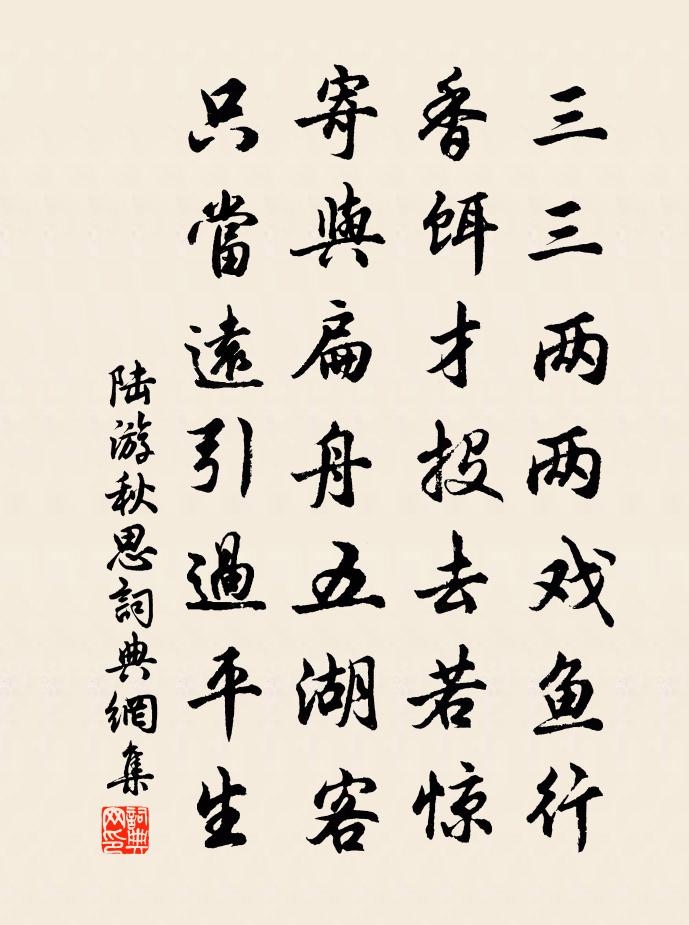 三三两两戏鱼行
香饵才投去若惊
寄與扁舟五湖客
只當遠引過平生
陆游秋思詞典網集
詞典网印